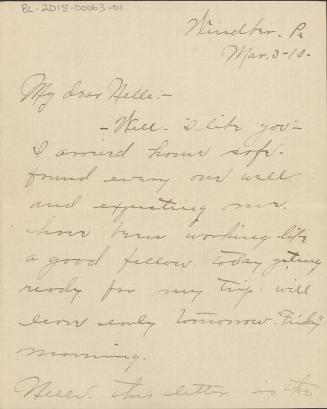 BL-2018-00063-01
Windber, Pa.
Mar. 3-10.
My dear Nelle:-
-Well- "I like you"-
I arrived home safe.
found every one well
and expecting me.
have been working like
a good fellow. today getting
ready for my trip. will
leave early tomorrow. "Friday"
morning.
Nelle. this letter is the